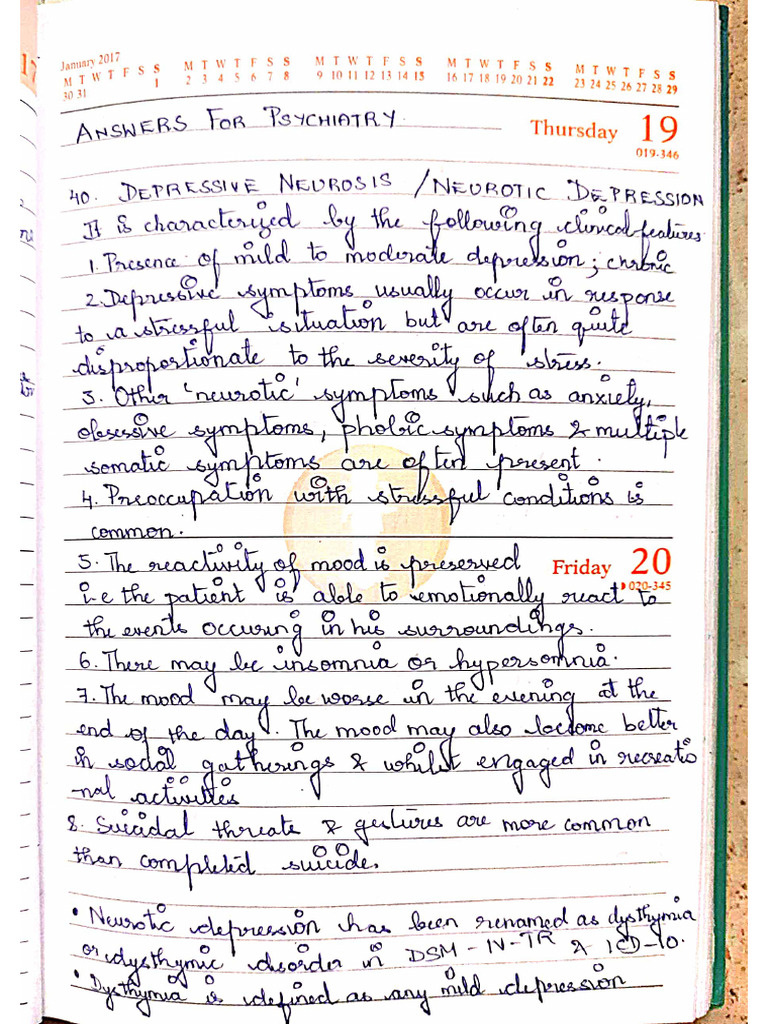 January 2017
M T W T F S S   M T W T F S S   M T W T F S S   M T W T F S S   M T W T F S S
30 31 1   2 3 4 5 6 7 8   9 10 11 12 13 14 15   16 17 18 19 20 21 22   23 24 25 26 27 28 29
17
ANSWERS FOR PSYCHIATRY.
Thursday 19
019-346
40. DEPRESSIVE NEUROSIS / NEUROTIC DEPRESSION
It is characterized by the following clinical features
1. Presence of mild to moderate depression; chronic
2. Depressive symptoms usually occur in response
to a stressful situation but are often quite
disproportionate to the severity of stress.
3. Other 'neurotic' symptoms such as anxiety,
obsessive symptoms, phobic symptoms & multiple
somatic symptoms are often present.
4. Preoccupation with stressful conditions is
common.
5. The reactivity of mood is preserved
Friday 20
020-345
i.e the patient is able to emotionally react to
the events occuring in his surroundings.
6. There may be insomnia or hypersomnia.
7. The mood may be worse in the evening at the
end of the day. The mood may also become better
in social gatherings & whilst engaged in recreatio
-nal activities
8. Suicidal threats & gestures are more common
than completed suicide.
• Neurotic depression has been renamed as dysthymia
or dysthymic disorder in DSM-IV-TR & ICD-10.
• Dysthymia is defined as any mild depression